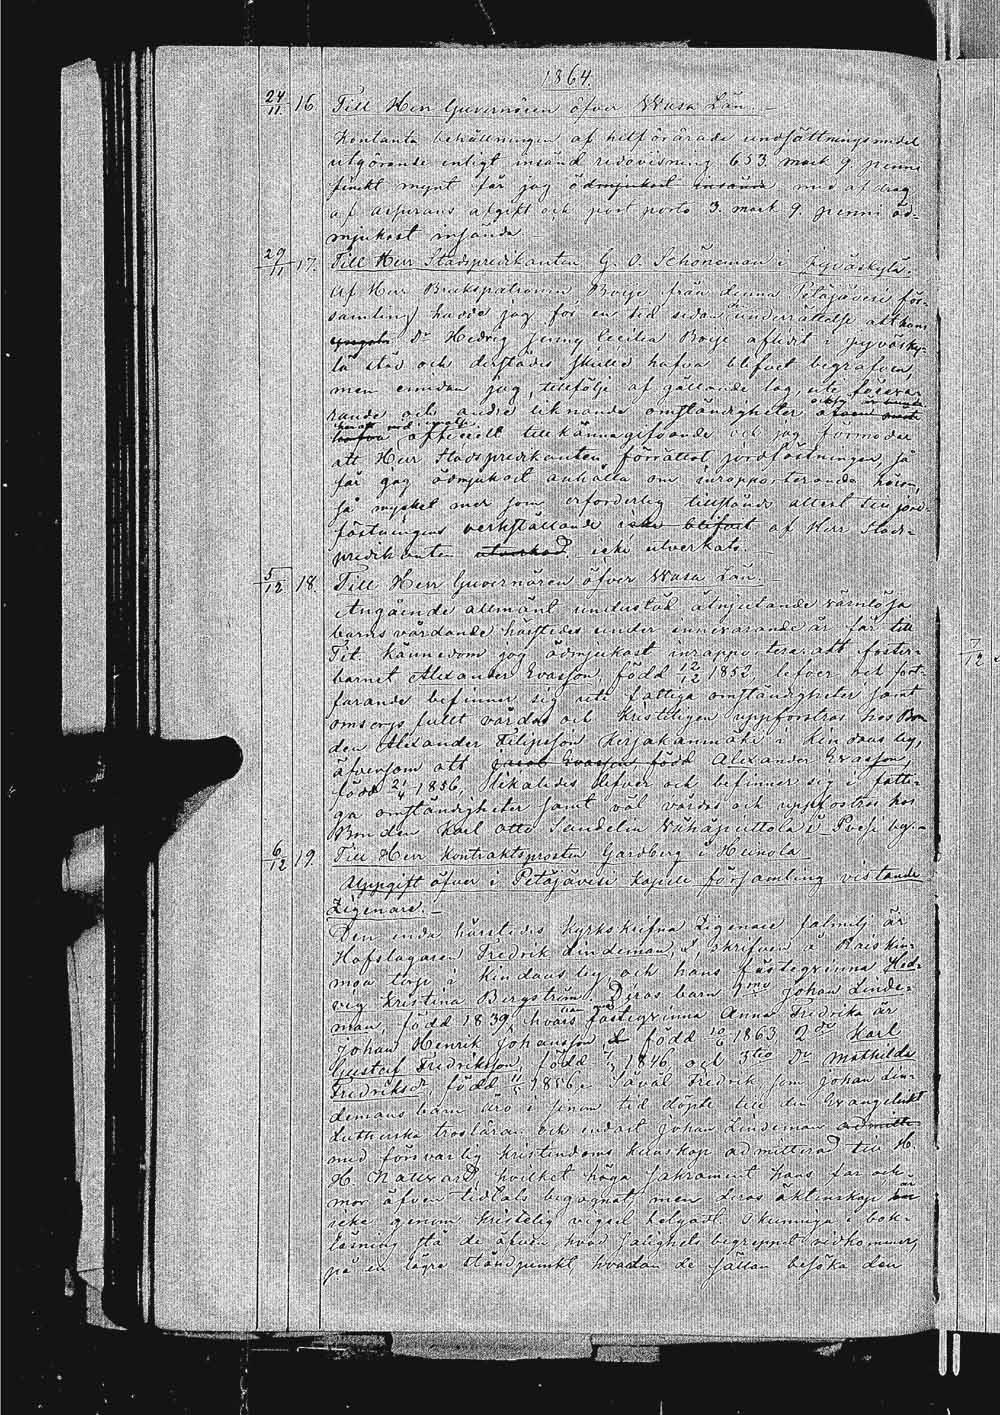 1864.
24/11. 16. Till Herr Guvernören öfver Wasa Län. —
Kontanta behållningen af hitförärade undsättningsmedel
utgörande enligt insänd redovisning 653. mark 9. penni
finskt mynt får jag ödmjukast insända med afdrag
af assurans afgift och post porto 3. mark 9. penni öd-
mjukast insända —
29/11 17. Till Herr Stadspredikanten G. O. Schöneman i Jyväskylä.
Af Herr Brukspatronen Boije från denna Petäjävesi för-
samling hade jag för en tid sedan underrättelse att hans
Dr Hedvig Jenny Cecilia Boije aflidit i Jyväsky-
lä stad och derstädes skulle hafva blifvit begrafven,
men emedan jag, tillfölje af gällande lag, uti förevar-
rande och andre liknande omständigheter
officielt tillkännagifvande och jag förmodar
att Herr Stadspredikanten förrättat jordfästningen, så
får jag ödmjukast anhålla om inrapporterande härom,
så mycket mer som erforderlig tillstånds attest till jord-
fästningens verkställande icke blifvit af Herr Stads-
predikanten utverkad icke utverkats. —
5/12 18. Till Herr Guvernören öfver Wasa Län. —
Angående allmänt understöd åtnjutande värnlösa
barns vårdande härstedes under innevarande år får till
Tit. kännedom jag ödmjukast inrapportera att foster-
barnet Alexander Evasson, född 12/12 1852, lefver och fort-
farande befinner sig uti fattiga omständigheter samt
omsorgsfullt vårdas och kristeligen uppfostras hos Bon-
den Alexander Filipsson Kerjakanmäki i Kindaus by,
äfvensom att Jacob Evasson född Alexander Evasson,
född 21/4 1856, likaledes lefver och befinner sig i fatti-
ga omständigheter samt väl vårdas och uppfostras hos
Bonden Karl Otto Sandelin Vähäpiittola i Pvesi by. —
6/12 19. Till Herr Kontraktsprosten Gardberg i Heinola
Uppgift öfver i Petäjävesi kapell församling vistande
Zigenare. —
Den enda härstedes kyrkskrifna Zigenare familj är
Hofslagaren Fredrik Lindeman, skrifven å Raiskin-
moa torp i Kindaus by och hans fästeqvinna Hed-
vig Kristina Bergström. Deras barn 1mo Johan Linde-
man, född 1839, hvars fästeqvinna Anna Fredrika är
Johan Henrik Johansson född 10/6 1863. 2do Karl
Gustaf Fredriksson, född 1/3 1846, och 3tio Dr Mathilda
Fredriksdr, född 11/5 1856. Såväl Fredrik som Johan Lin-
demans barn äro i sinom tid döpte till den Evangeliskt
Lutherska trosläran och endast Johan Lindeman admitte-
med försvarlig kristendoms kunskap admitterad till H.
H. Nattvard, hvilket höga sakrament hans far och
mor äfven tidtals begagnat, men deras äktenskap är
icke genom kristelig vigsel helgadt. Okunniga i bok-
läsning stå de äfven, hvad salighets begreppet vidkommer,
på en lägre ståndpunkt hvarken de sällan besöka den
7/12